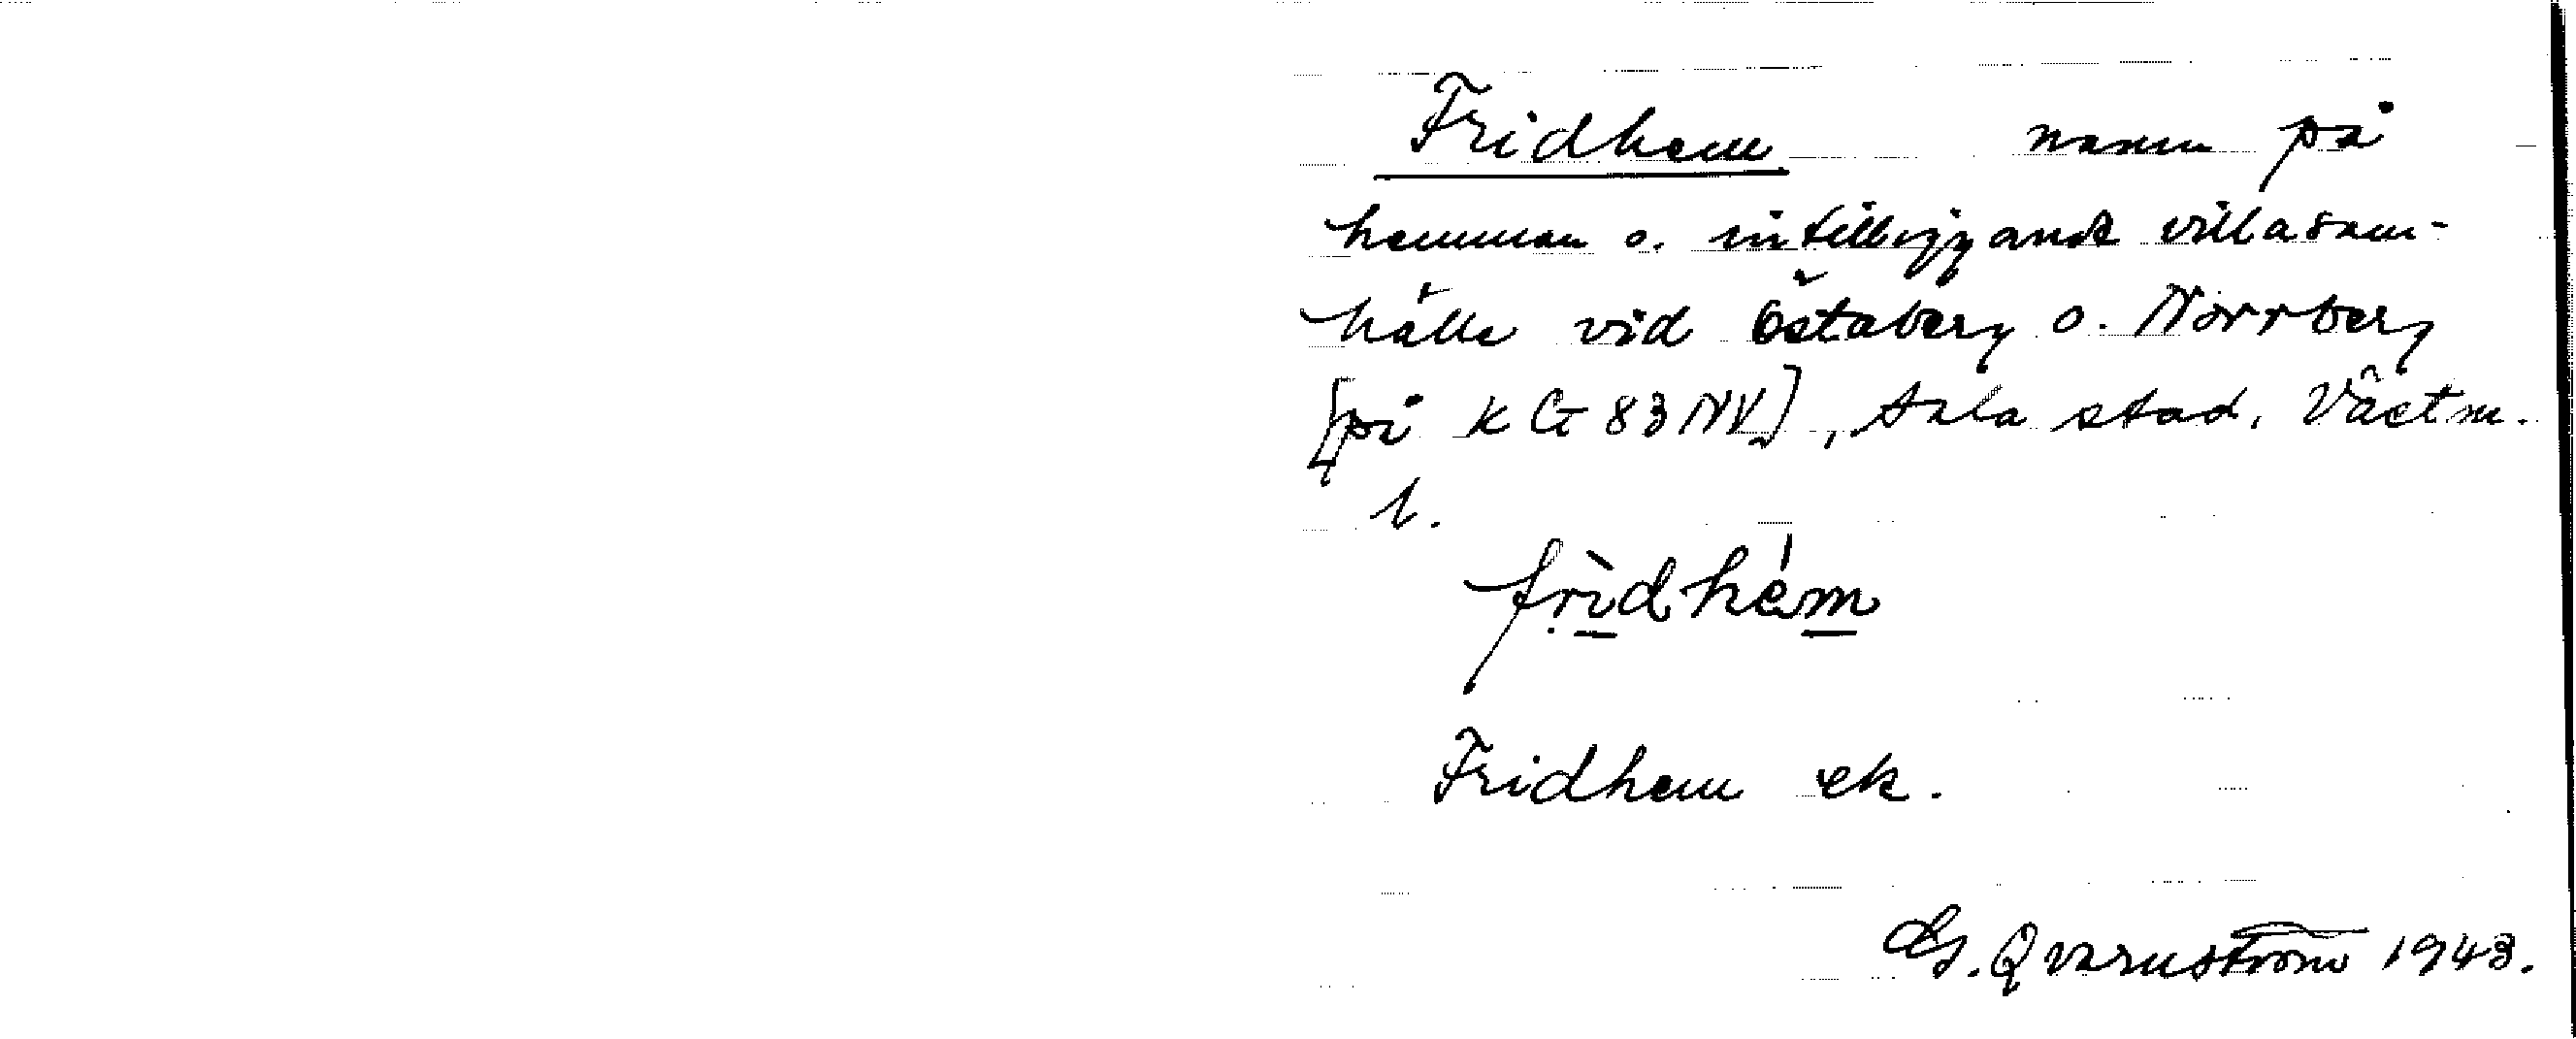 Fridhem namn på
hemman o. intilliggande villasam-
hälle vid Östaberg o. Norrberg
[på k G 83 NV], Sala stad, Västm.
l.
fridhem
Fridhem ek.
G. Qvarnström 1943.